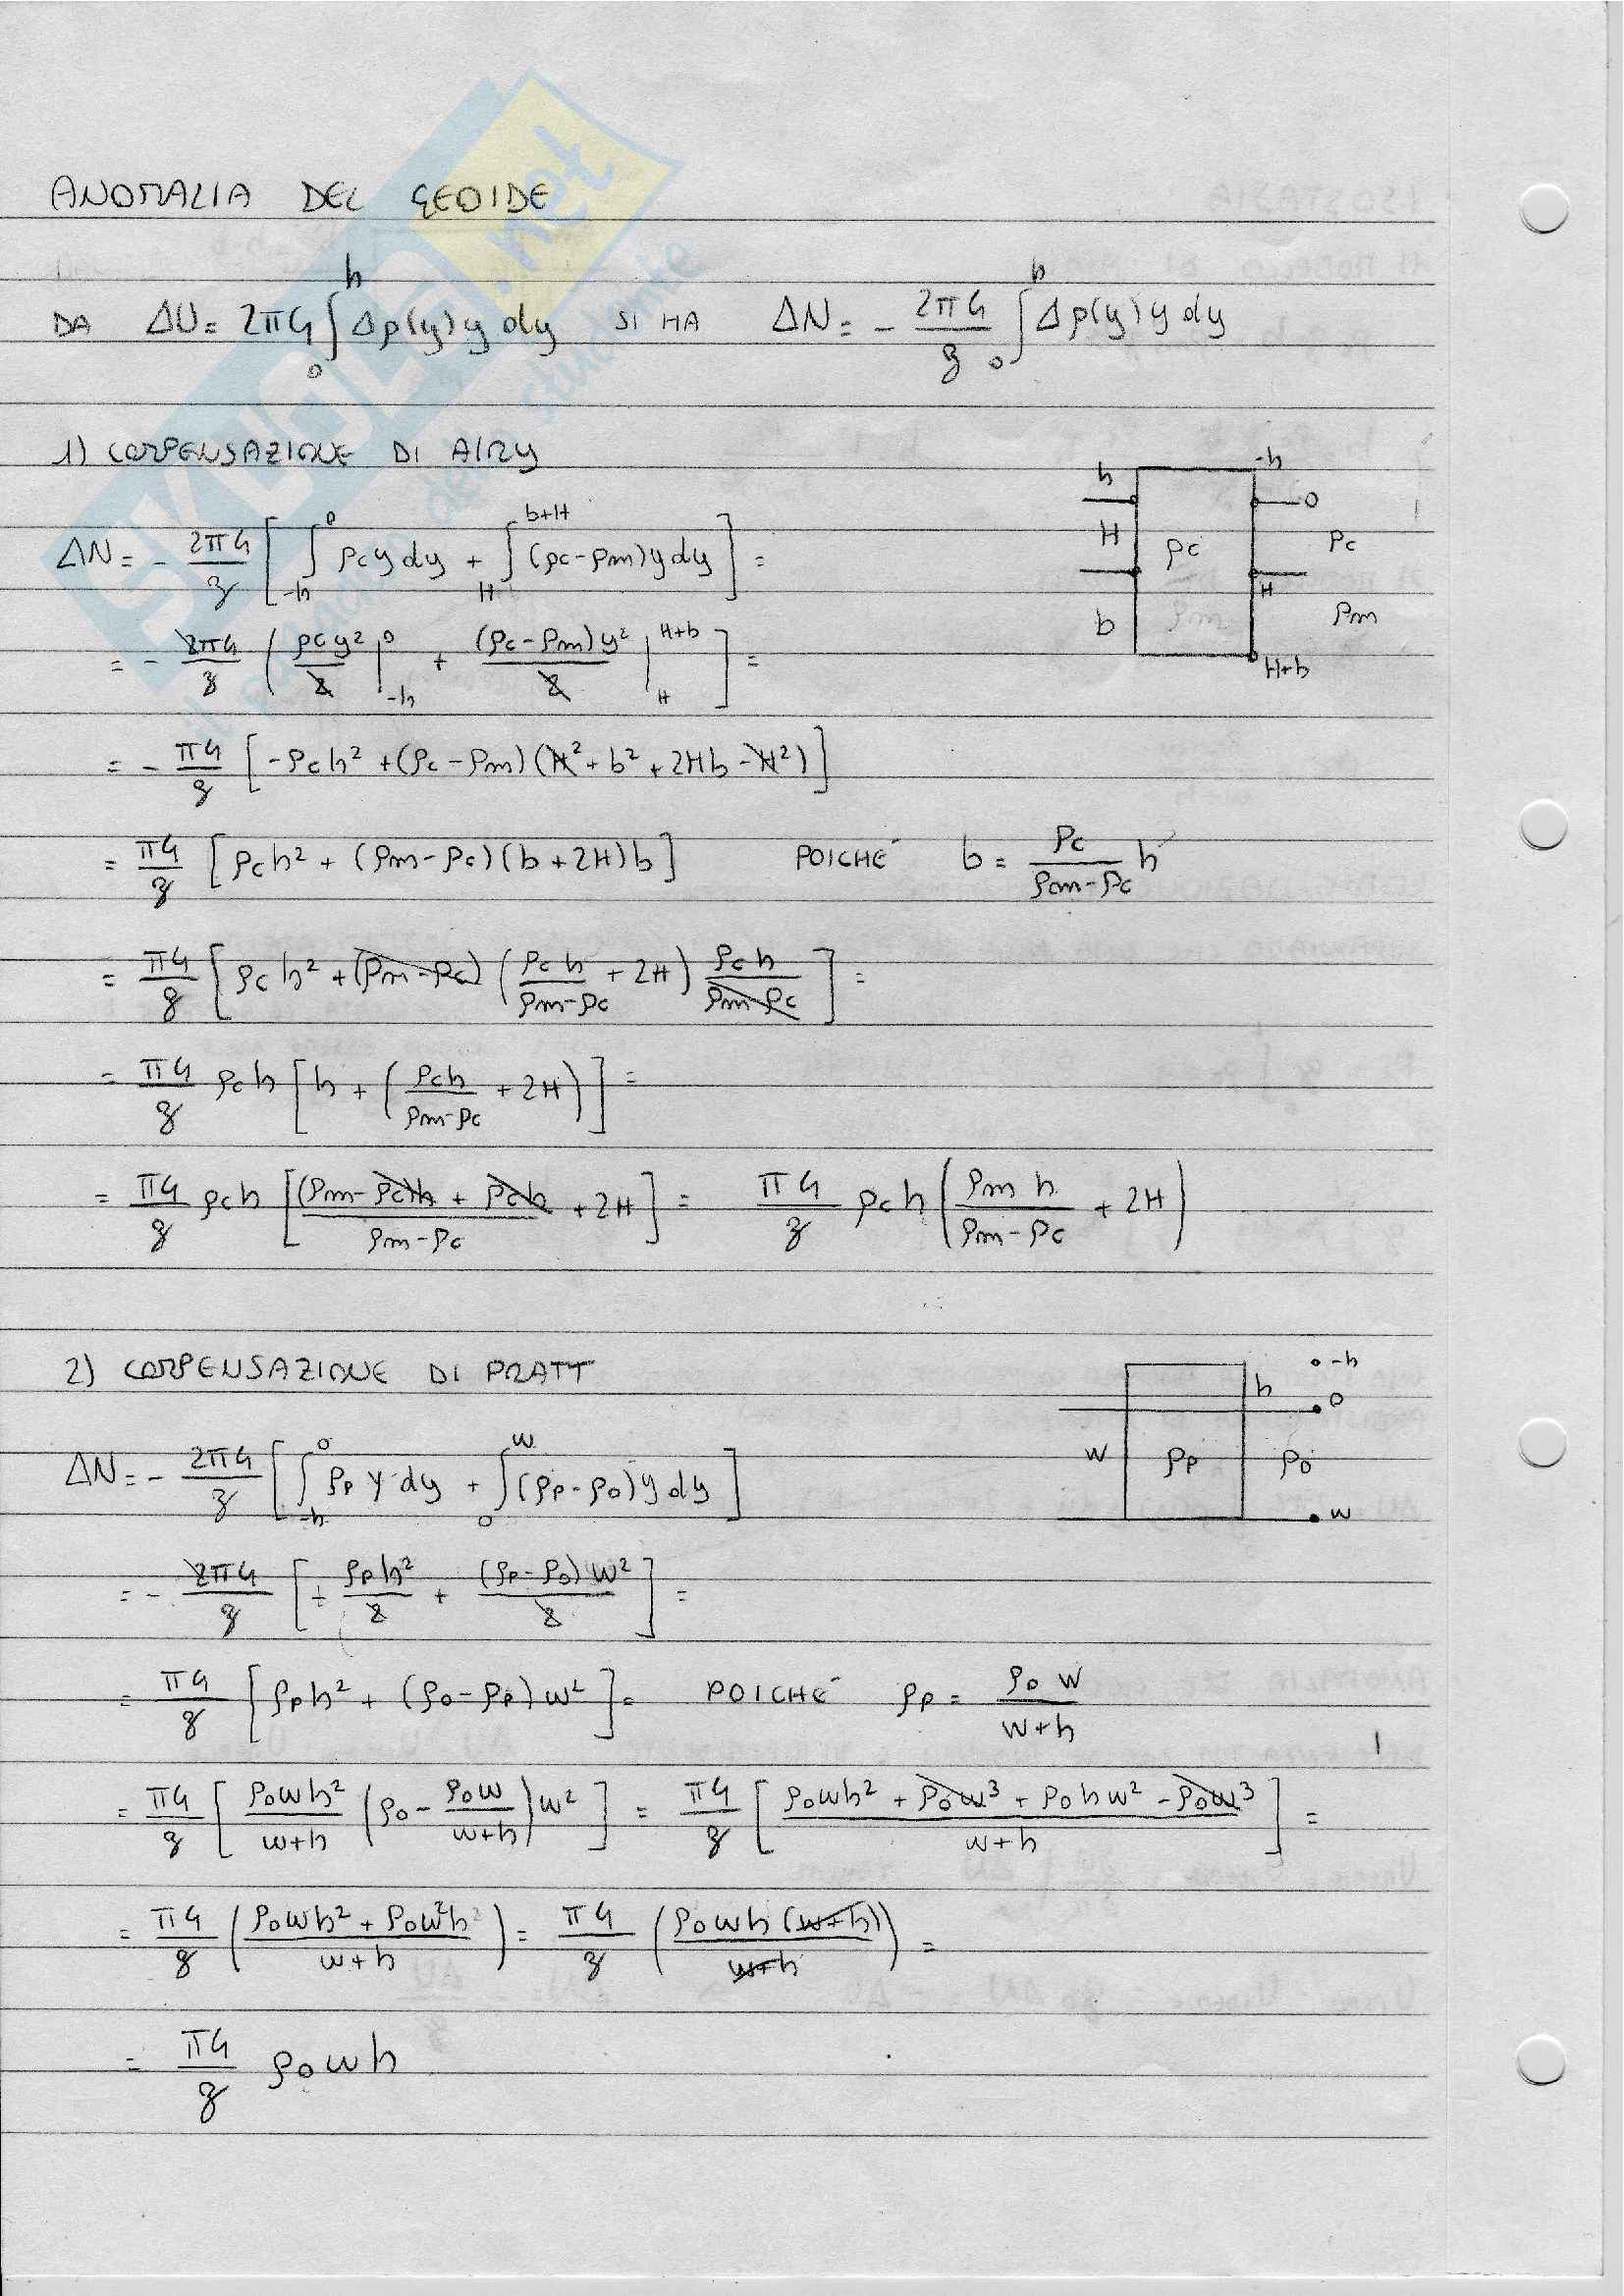 ANOMALIA DEL GEOIDE
DA ΔU = 2πG ∫₀ʰ Δρ(y) y dy SI HA ΔN = - 2πG/g ∫₀ʰ Δρ(y) y dy
1) COMPENSAZIONE DI AIRY
ΔN = - 2πG/g [ ∫₋ₕ⁰ ρc y dy + ∫_H^(b+H) (ρc-ρm) y dy ] =
= - 2πG/g ( ρc y²/2 |₋ₕ⁰ + (ρc-ρm) y²/2 |_H^(H+b) ] =
= - πG/g [ -ρc h² + (ρc-ρm)(H² + b² + 2Hb - H²) ]
= πG/g [ ρc h² + (ρm-ρc)(b+2H)b ] POICHÉ b = ρc/(ρm-ρc) h
= πG/g [ ρc h² + (ρm-ρc) ( ρc h/(ρm-ρc) + 2H ) ρc h/(ρm-ρc) ] =
= πG/g ρc h [ h + ( ρc h/(ρm-ρc) + 2H ) ] =
= πG/g ρc h [ ((ρm-ρc)h + ρc h)/(ρm-ρc) + 2H ] = πG/g ρc h ( ρm h/(ρm-ρc) + 2H )
h -h
0
H ρc ρc
H
b ρm ρm
H+b
2) COMPENSAZIONE DI PRATT
ΔN = - 2πG/g [ ∫₋ₕ⁰ ρp y dy + ∫₀ʷ (ρp-ρ0) y dy ]
= - 2πG/g [ - ρp h²/2 + (ρp-ρ0) w²/2 ] =
= πG/g [ ρp h² + (ρ0-ρp) w² ] = POICHÉ ρp = ρ0 w/(w+h)
= πG/g [ ρ0 w h²/(w+h) ( ρ0 - ρ0 w/(w+h) ) w² ] = πG/g [ (ρ0 w h² + ρ0 w³ + ρ0 h w² - ρ0 w³)/(w+h) ] =
= πG/g ( (ρ0 w h² + ρ0 w² h)/(w+h) ) = πG/g ( ρ0 w h (w+h)/(w+h) ) =
= πG/g ρ0 w h
-h
h 0
w ρp ρ0
w
.net